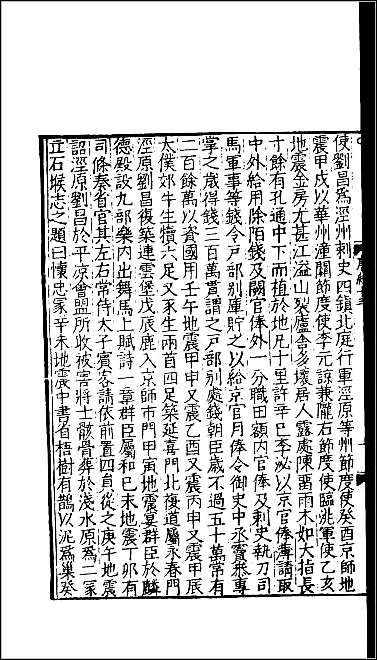 使劉昌爲涇州刺史四鎮北庭行軍涇原等州節度使癸酉京師地
震甲戌以華州潼關節度使李元諒兼隴右節度使臨洮軍使乙亥
地震金房尤甚江溢山裂廬舍多壞居人露處陳留雨木如大指長
寸餘有孔通中下而植於地凡十里許辛巳李泌以京官俸薄請取
中外給用除陌錢及闕官俸外一分職田額內官俸及刺史執刀司
馬軍事等錢令戶部別庫貯之以給京官月俸令御史中丞竇參專
掌之歲得錢三百萬貫謂之戶部別處錢朝臣歲不過五十萬常有
二百餘萬以資國用壬午地震甲申又震乙酉又震丙申又震甲辰
太僕郊牛生犢六足又豕生兩首四足築延喜門北復道屬永春門
涇原劉昌復築連雲堡戊辰鹿入京師市門甲寅地震宴群臣於麟
德殿設九部樂內出舞馬上賦詩一章群臣屬和己未地震丁卯有
司條奏省官其左右常侍太子賓客請依前置四員從之庚午地震
詔涇原劉昌於平涼會盟所收被害將士骸骨葬於淺水原爲二冢
立石堠志之題曰懷忠冢辛未地震中書省梧樹有鵲以泥爲巢癸